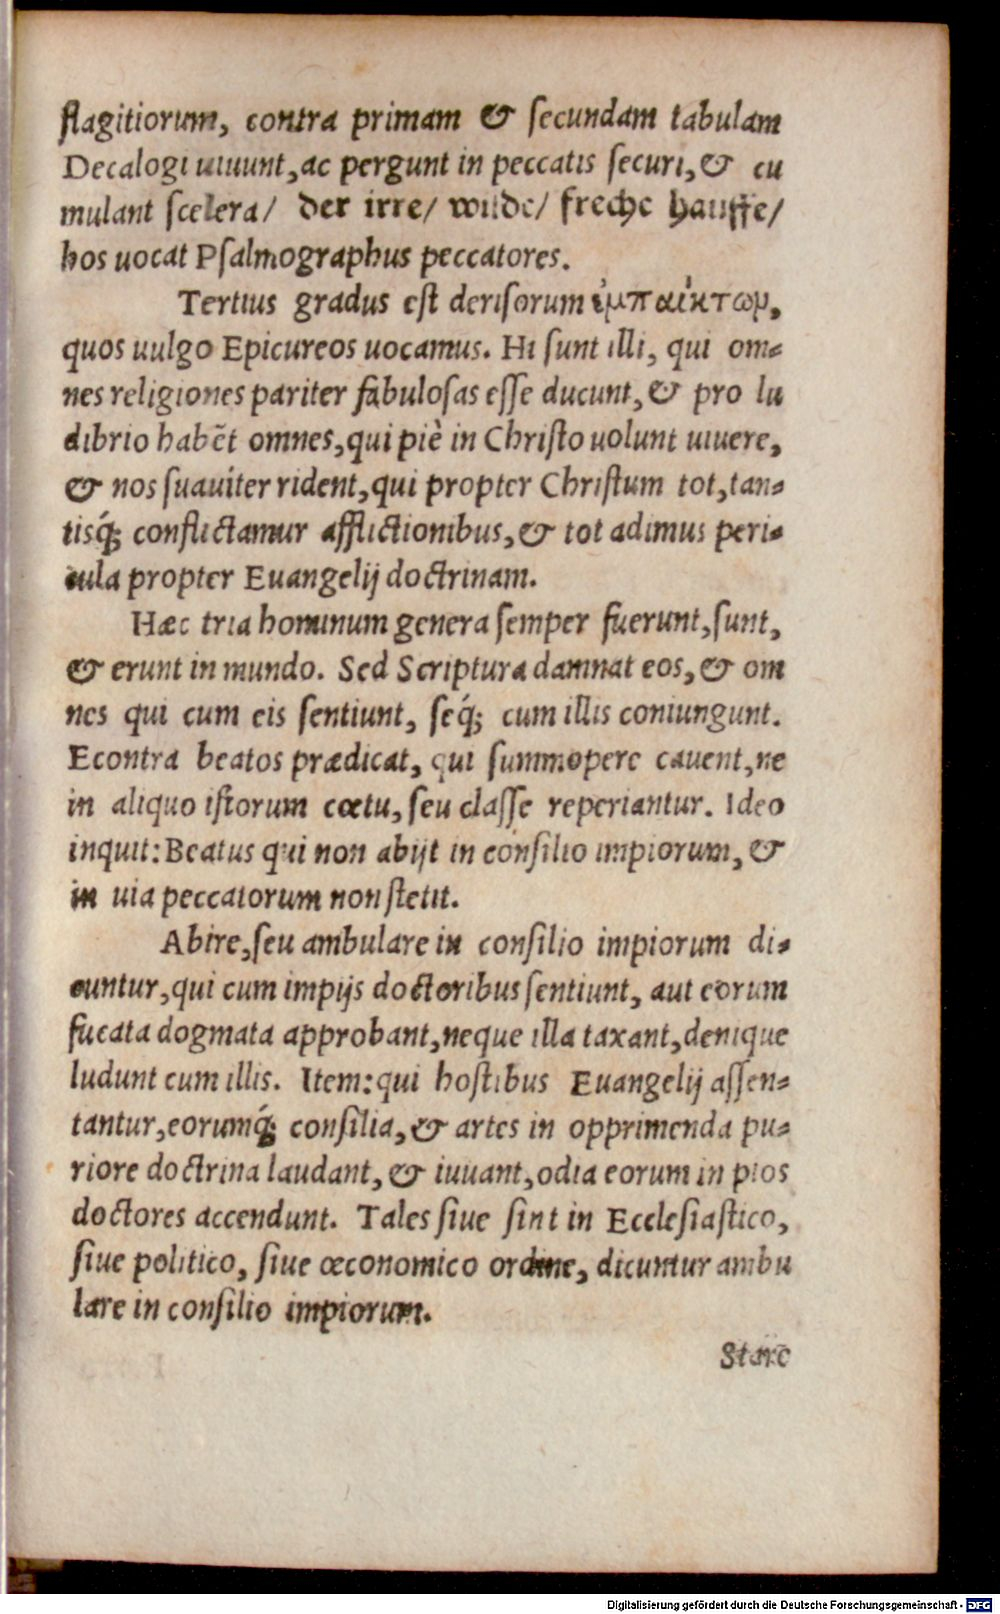 flagitiorum, contra primam & ſecundam tabulam
Decalogi uiuunt, ac pergunt in peccatis ſecuri, & cu
mulant ſcelera/ der irre/ wilde/ freche hauffe/
hos uocat Pſalmographus peccatores.
Tertius gradus eſt deriſorum ἐμπαίκτων,
quos uulgo Epicureos uocamus. Hi ſunt illi, qui om=
nes religiones pariter fabuloſas eſſe ducunt, & pro lu
dibrio habēt omnes, qui piè in Chriſto uolunt uiuere,
& nos ſuauiter rident, qui propter Chriſtum tot, tan=
tisq́; conflictamur afflictionibus, & tot adimus peri=
cula propter Euangelij doctrinam.
Hæc tria hominum genera ſemper fuerunt, ſunt,
& erunt in mundo. Sed Scriptura damnat eos, & om
nes qui cum eis ſentiunt, ſeq́; cum illis coniungunt.
Econtra beatos prædicat, qui ſummopere cauent, ne
in aliquo iſtorum cœtu, ſeu claſſe reperiantur. Ideo
inquit: Beatus qui non abijt in conſilio impiorum, &
in uia peccatorum non ſtetit.
Abire, ſeu ambulare in conſilio impiorum di=
cuntur, qui cum impijs doctoribus ſentiunt, aut eorum
fucata dogmata approbant, neque illa taxant, denique
ludunt cum illis. Item: qui hoſtibus Euangelij aſſen=
tantur, eorumq́; conſilia, & artes in opprimenda pu=
riore doctrina laudant, & iuuant, odia eorum in pios
doctores accendunt. Tales ſiue ſint in Eccleſiaſtico,
ſiue politico, ſiue œconomico ordine, dicuntur ambu
lare in conſilio impiorum.
Stare
Digitalisierung gefördert durch die Deutsche Forschungsgemeinschaft - DFG